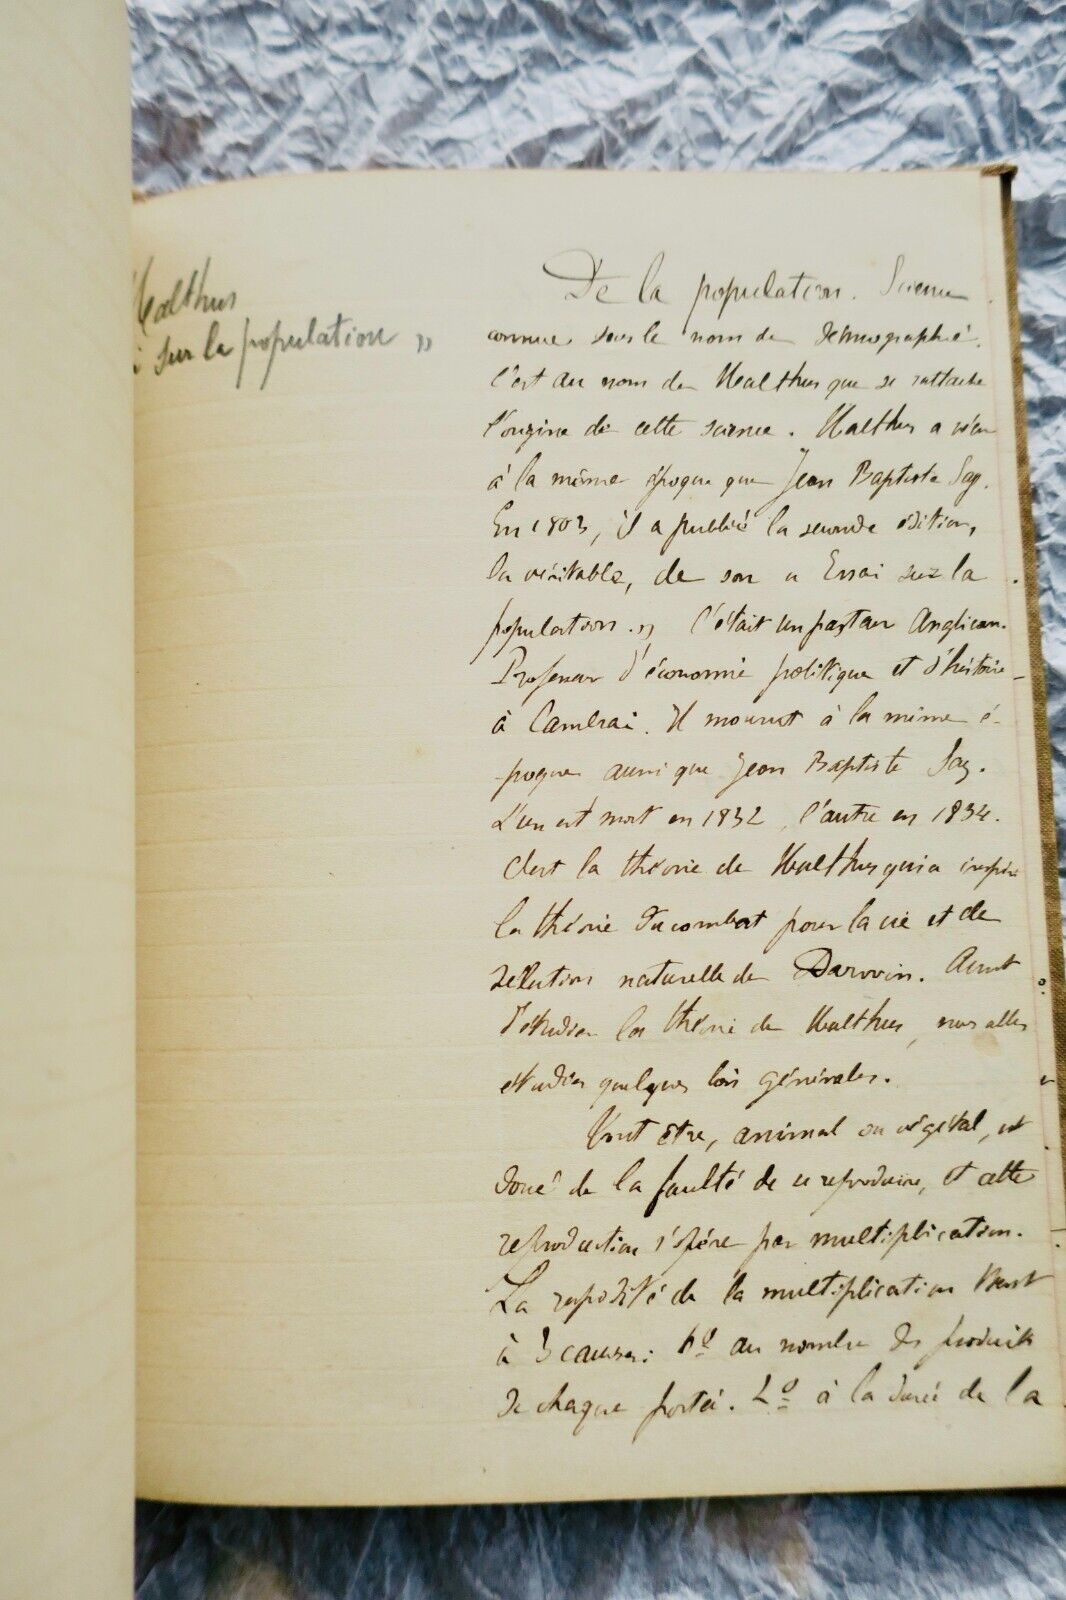 Malthus
sur la population »
De la population. Science
connue sous le nom de démographie.
C'est au nom de Malthus que se rattache
l'origine de cette science. Malthus a vécu
à la même époque que Jean Baptiste Say.
En 1803, il a publié la seconde édition,
la véritable, de son « Essai sur la
population. » C'était un pasteur Anglican.
Professeur d'économie politique et d'histoire
à Cambrai. Il mourut à la même é-
poque aussi que Jean Baptiste Say.
L'un est mort en 1832, l'autre en 1834.
C'est la théorie de Malthus qui a inspiré
la théorie du combat pour la vie et de
sélection naturelle de Darwin. Avant
d'étudier la théorie de Malthus, nous allons
étudier quelques lois générales.
Tout être, animal ou végétal, est
doué de la faculté de se reproduire, et cette
reproduction s'opère par multiplication.
La rapidité de la multiplication tient
à 3 causes: 1º au nombre de produits
de chaque portée. 2º à la durée de la